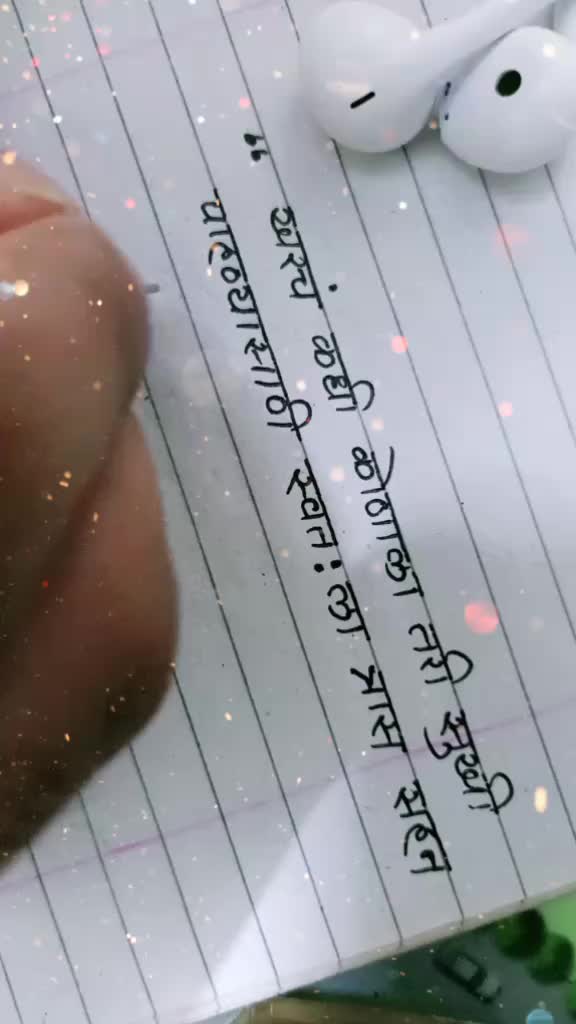 “ खरचं कधी कोणाला तरी सुखी
पाहण्यासाठी स्वत:ला त्रास सहन